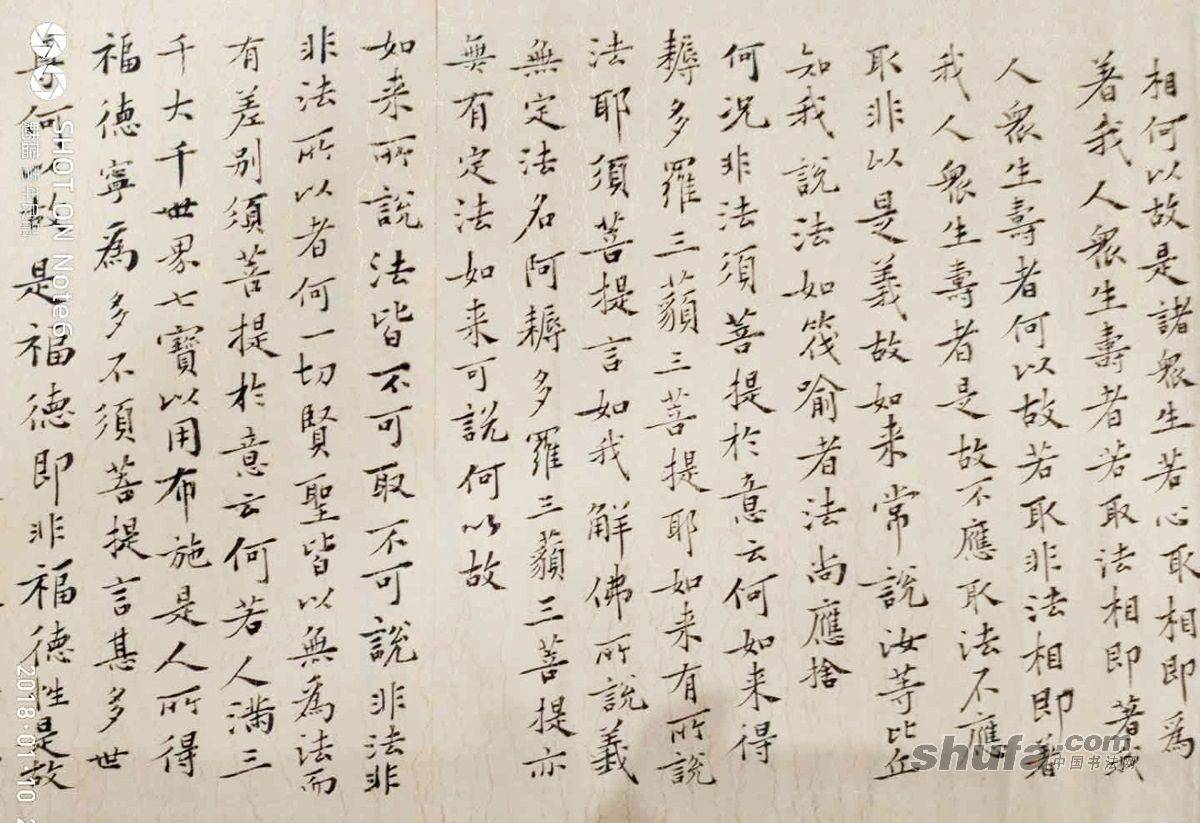 相何以故是諸衆生若心取相即爲
著我人衆生壽者若取法相即著我
人衆生壽者何以故若取非法相即著
我人衆生壽者是故不應取法不應
取非以是義故如来常說汝等比丘
知我說法如筏喻者法尚應捨
何况非法須菩提於意云何如来得
耨多羅三藐三菩提耶如来有所說
法耶須菩提言如我解佛所說義
無定法名阿耨多羅三藐三菩提亦
無有定法如来可說何以故
如来所說法皆不可取不可說非法非
非法所以者何一切賢聖皆以無爲法而
有差别須菩提於意云何若人滿三
千大千世界七寶以用布施是人所得
福德寧爲多不須菩提言甚多世
尊何以故是福德即非福德性是故
SHOT ON Note6
2018-01-10 2
shufa.com
中国书法网